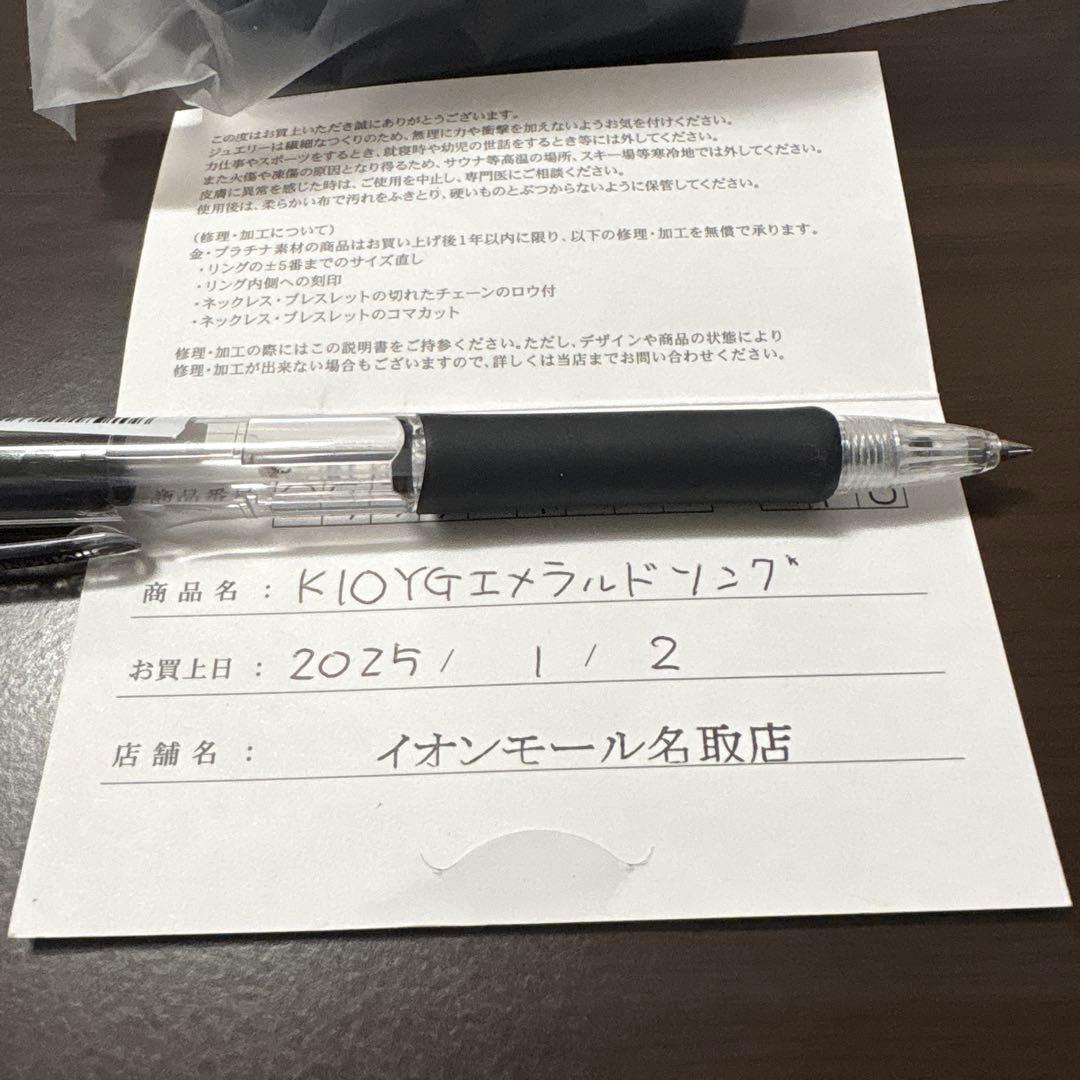 この度はお買上いただき誠にありがとうございます。
ジュエリーは繊細なつくりのため、無理に力や衝撃を加えないようお気を付けください。
力仕事やスポーツをするとき、就寝時や幼児の世話をするとき等には外してください。
また火傷や凍傷の原因となり得るため、サウナ等高温の場所、スキー場等寒冷地では外してください。
皮膚に異常を感じた時は、ご使用を中止し、専門医にご相談ください。
使用後は、柔らかい布で汚れをふきとり、硬いものとぶつからないように保管してください。
（修理・加工について）
金・プラチナ素材の商品はお買い上げ後1年以内に限り、以下の修理・加工を無償で承ります。
・リングの±5番までのサイズ直し
・リング内側への刻印
・ネックレス・ブレスレットの切れたチェーンのロウ付
・ネックレス・ブレスレットのコマカット
修理・加工の際にはこの説明書をご持参ください。ただし、デザインや商品の状態により
修理・加工が出来ない場合もございますので、詳しくは当店までお問い合わせください。
商品番
商品名： K10YGエメラルドリング
お買上日： 2025/ 1 / 2
店舗名： イオンモール名取店